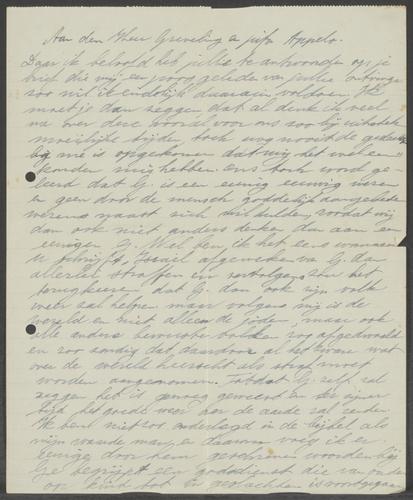 Aan den Heer Greveling en jufr. Appelo.
Daar ik beloofd heb jullie te antwoorden op je
brief die wij een poos geleden van jullie ontvingen
zoo wil ik eindelijk daaraan voldoen. Ik
moet je dan zeggen dat al denk ik veel
na over deze vooral voor ons zoo bij uitstek
moeilijke tijden, toch nog nooit de gedachte
bij mij is opgekomen dat wij het wel een
konden mis hebben. ons toch word ge-
leerd dat G. is een eenig eeuwig wezen
en geen door de mensch goddelijk aangebeden
wezens naast zich dulden, zoodat wij
dan ook niet anders denken dan aan een
eenigen G. Wel ben ik het eens wanneer
U schrijft, Israël afgeweken van G. dan
allerlei straffen en vervolgens het
terugkeeren dat G. dan ook zijn volk
weer zal helpen maar volgens mij is de
wereld en niet alleen de joden, maar ook
alle andere bewoonde zoo afgedwaald
en zoo zondig dat daardoor al het wat
over de wereld heerscht als straf moet
worden aangenomen, totdat G. zelf zal
zeggen het is genoeg geweest en ten zijner
tijd het goede weer aan de aarde zal zenden.
Ik ben niet zoo onderlegd in de bijbel als
mijn waarde man, en daarom voeg ik er
Eenige door hem geschreven woorden bij
Ge begrijpt een godsdienst die van ouder
op kind tot in geslachten is voortgegaan